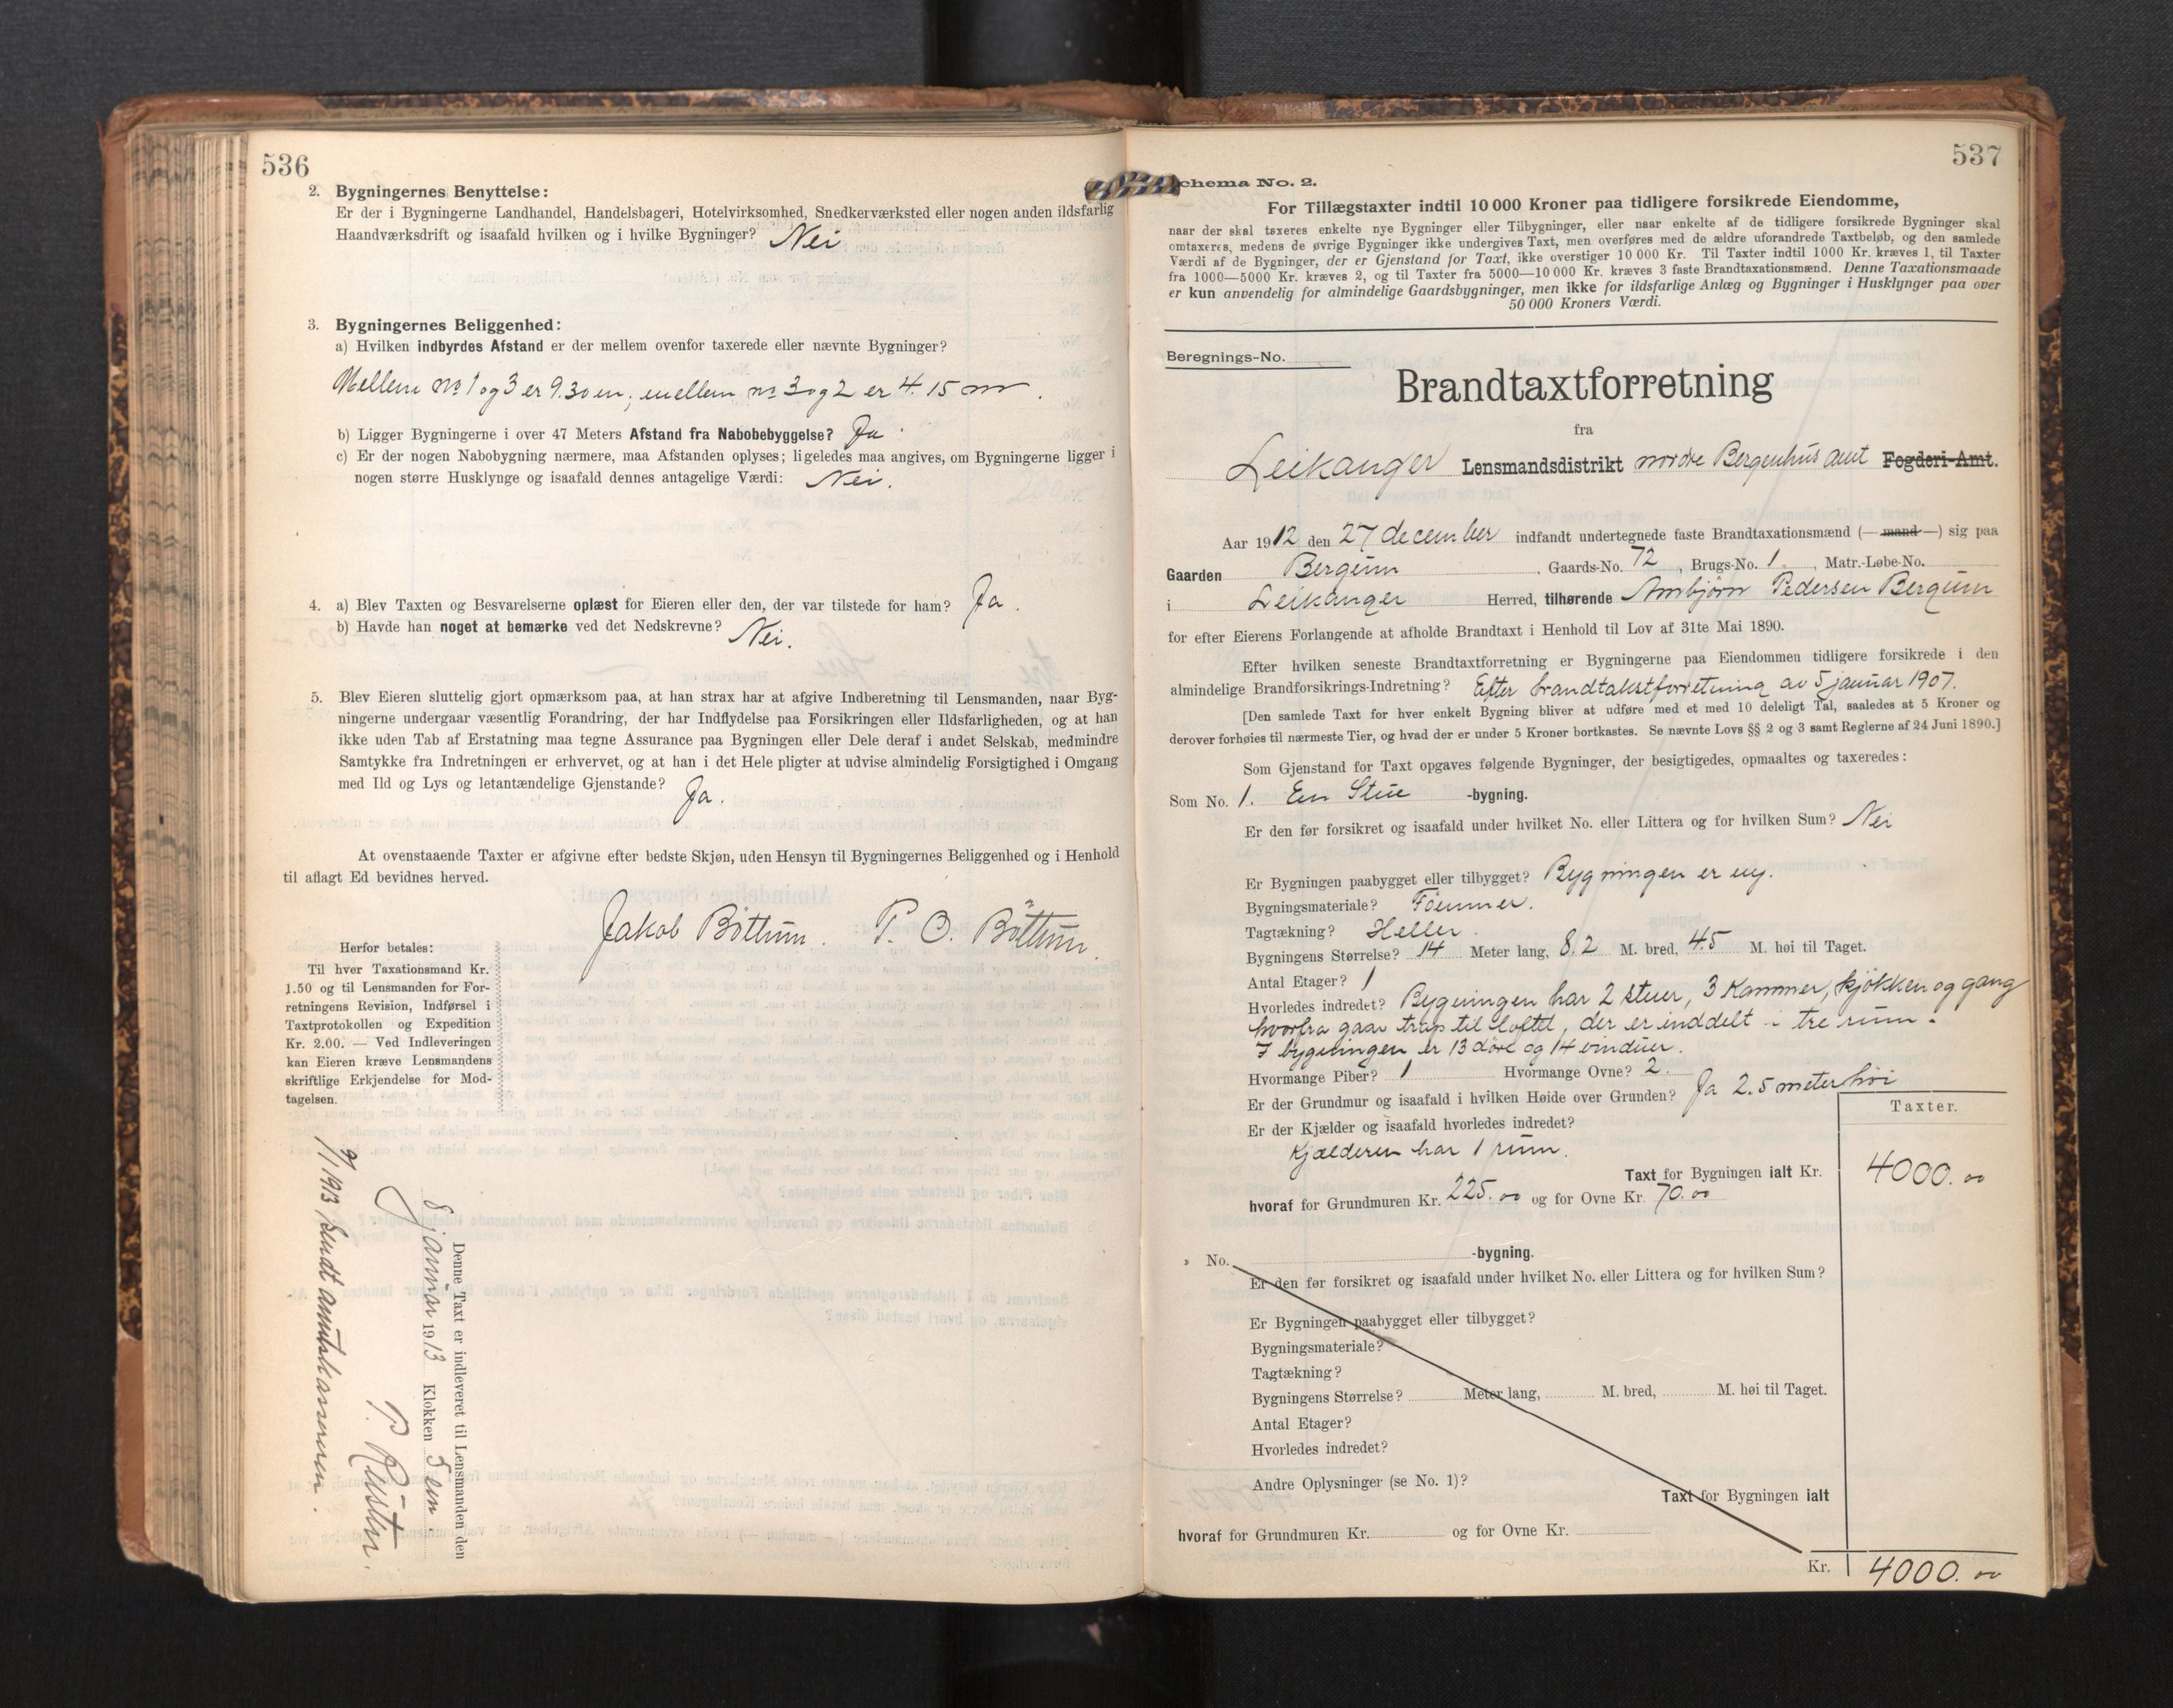 536
2. Bygningernes Benyttelse:
Er der i Bygningerne Landhandel, Handelsbageri, Hotelvirksomhed, Snedkerværksted eller nogen anden ildsfarlig
Haandværksdrift og isaafald hvilken og i hvilke Bygninger? Nei
3. Bygningernes Beliggenhed:
a) Hvilken indbyrdes Afstand er der mellem ovenfor taxerede eller nævnte Bygninger?
Mellem no 1 og 3 er 9.30 m; mellem no 3 og 2 er 4.15 m.
b) Ligger Bygningerne i over 47 Meters Afstand fra Nabobebyggelse? Ja.
c) Er der nogen Nabobygning nærmere, maa Afstanden oplyses; ligeledes maa angives, om Bygningerne ligger i
nogen større Husklynge og isaafald dennes antagelige Værdi: Nei.
4. a) Blev Taxten og Besvarelserne oplæst for Eieren eller den, der var tilstede for ham? Ja.
b) Havde han noget at bemærke ved det Nedskrevne? Nei.
5. Blev Eieren sluttelig gjort opmærksom paa, at han strax har at afgive Indberetning til Lensmanden, naar Byg-
ningerne undergaar væsentlig Forandring, der har Indflydelse paa Forsikringen eller Ildsfarligheden, og at han
ikke uden Tab af Erstatning maa tegne Assurance paa Bygningen eller Dele deraf i andet Selskab, medmindre
Samtykke fra Indretningen er erhvervet, og at han i det Hele pligter at udvise almindelig Forsigtighed i Omgang
med Ild og Lys og letantændelige Gjenstande? Ja.
At ovenstaaende Taxter er afgivne efter bedste Skjøn, uden Hensyn til Bygningernes Beliggenhed og i Henhold
til aflagt Ed bevidnes herved.
Jakob Böttum. P. O. Böttum.
Herfor betales:
Til hver Taxationsmand Kr.
1.50 og til Lensmanden for For-
retningens Revision, Indførsel i
Taxtprotokollen og Expedition
Kr. 2.00. — Ved Indleveringen
kan Eieren kræve Lensmandens
skriftlige Erkjendelse for Mod-
tagelsen.
Denne Taxt er indleveret til Lensmanden den
8 januar 1913 Klokken 5 em.
P.
9/1 1913 sendt amtskassereren.
537
Schema No. 2.
For Tillægstaxter indtil 10 000 Kroner paa tidligere forsikrede Eiendomme,
naar der skal taxeres enkelte nye Bygninger eller Tilbygninger, eller naar enkelte af de tidligere forsikrede Bygninger skal
omtaxeres, medens de øvrige Bygninger ikke undergives Taxt, men overføres med de ældre uforandrede Taxtbeløb, og den samlede
Værdi af de Bygninger, der er Gjenstand for Taxt, ikke overstiger 10 000 Kr. Til Taxter indtil 1000 Kr. kræves 1, til Taxter
fra 1000—5000 Kr. kræves 2, og til Taxter fra 5000—10 000 Kr. kræves 3 faste Brandtaxationsmænd. Denne Taxationsmaade
er kun anvendelig for almindelige Gaardsbygninger, men ikke for ildsfarlige Anlæg og Bygninger i Husklynger paa over
50 000 Kroners Værdi.
Beregnings-No.
Brandtaxtforretning
fra
Leikanger Lensmandsdistrikt nordre Bergenhus amt Fogderi-Amt.
Aar 1912 den 27 december indfandt undertegnede faste Brandtaxationsmænd (— mand —) sig paa
Gaarden Bergum, Gaards-No. 72, Brugs-No. 1., Matr.-Løbe-No.
i Leikanger Herred, tilhørende Ambjørn Pedersen Bergum
for efter Eierens Forlangende at afholde Brandtaxt i Henhold til Lov af 31te Mai 1890.
Efter hvilken seneste Brandtaxtforretning er Bygningerne paa Eiendommen tidligere forsikrede i den
almindelige Brandforsikrings-Indretning? Efter brandtakstforretning av 5 januar 1907.
[Den samlede Taxt for hver enkelt Bygning bliver at udføre med et med 10 deleligt Tal, saaledes at 5 Kroner og
derover forhøies til nærmeste Tier, og hvad der er under 5 Kroner bortkastes. Se nævnte Lovs §§ 2 og 3 samt Reglerne af 24 Juni 1890.]
Som Gjenstand for Taxt opgaves følgende Bygninger, der besigtigedes, opmaaltes og taxeredes:
Som No. 1. En Stue -bygning.
Er den før forsikret og isaafald under hvilket No. eller Littera og for hvilken Sum? Nei
Er Bygningen paabygget eller tilbygget? Bygningen er ny.
Bygningsmateriale? Tömmer.
Tagtækning? Heller.
Bygningens Størrelse? 14 Meter lang, 8.2 M. bred, 4.5 M. høi til Taget.
Antal Etager? 1
Hvorledes indredet? Bygningen har 2 stuer, 3 Kammer, kjøkken og gang
hvorfra gaar trap til loftet, der er inddelt i tre rum.
I bygningen er 13 döre og 14 vinduer.
Hvormange Piber? 1 Hvormange Ovne? 2.
Er der Grundmur og isaafald i hvilken Høide over Grunden? Ja 2.5 meter høi
Er der Kjælder og isaafald hvorledes indredet?
Kjælderen har 1 rum.
Taxter.
Taxt for Bygningen ialt Kr. 4000.00
hvoraf for Grundmuren Kr. 225.00 og for Ovne Kr. 70.00
» No. -bygning.
Er den før forsikret og isaafald under hvilket No. eller Littera og for hvilken Sum?
Er Bygningen paabygget eller tilbygget?
Bygningsmateriale?
Tagtækning?
Bygningens Størrelse? Meter lang, M. bred, M. høi til Taget.
Antal Etager?
Hvorledes indredet?
Andre Oplysninger (se No. 1)?
Taxt for Bygningen ialt
hvoraf for Grundmuren Kr. og for Ovne Kr.
Kr. 4000.00